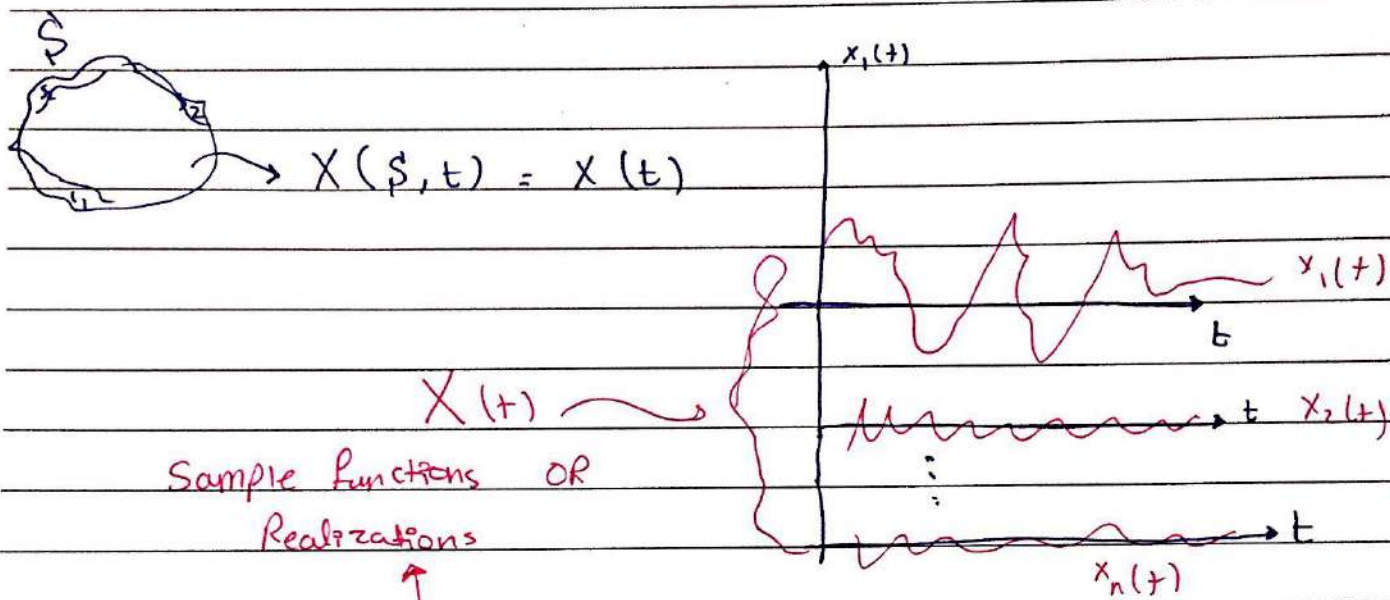 S
x₁(t)
2
1
X(S,t) = X(t)
x₁(t)
t
X(t)
t x₂(t)
Sample functions OR
Realizations
t
xₙ(t)